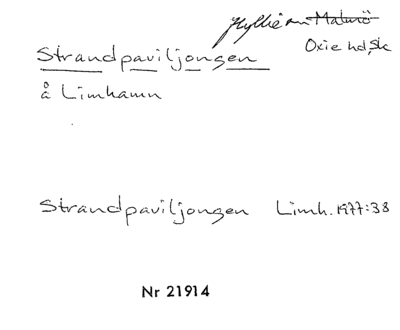 Hyllie sn Malmö
Strandpaviljongen Oxie hd, Sk
å Limhamn
Strandpaviljongen Limh. 1977:38
Nr 21914